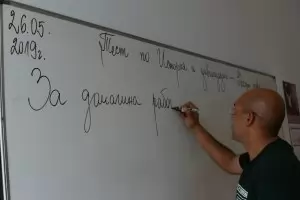 26.05.
2019г.
Тест по История и цивилизации
За домашна рабо